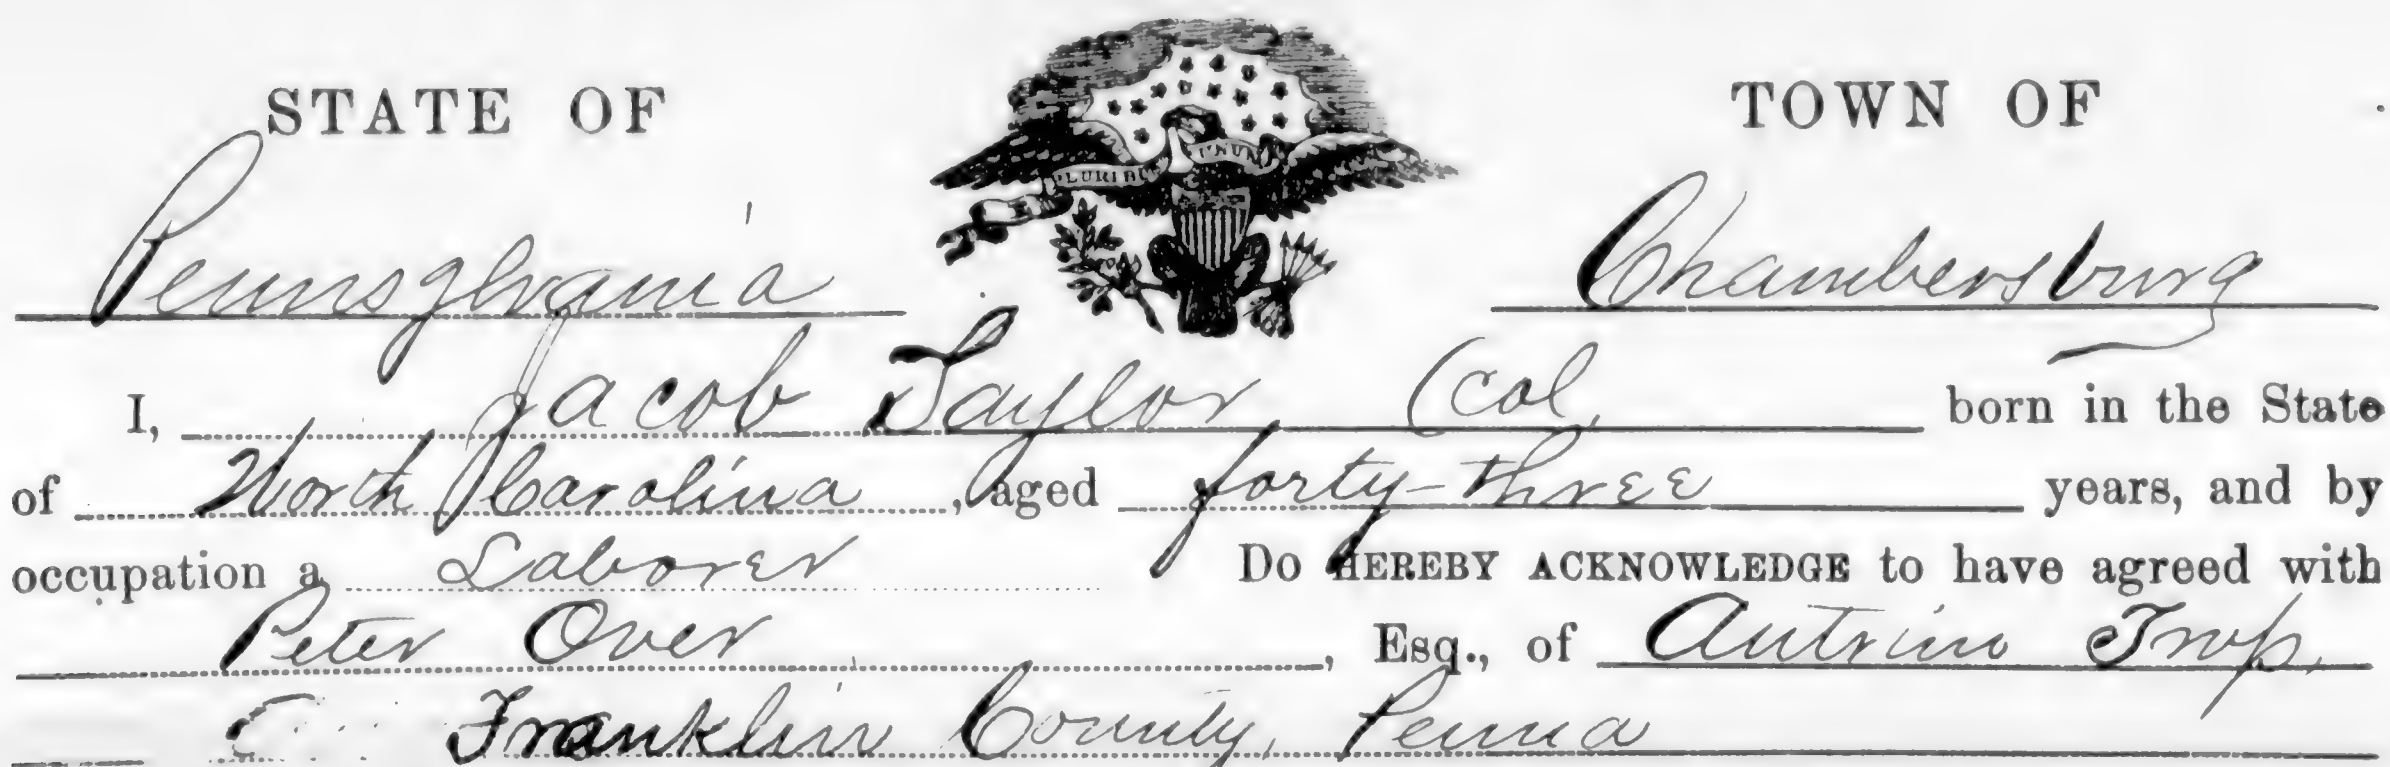 STATE OF
TOWN OF
PLURIB
UNUM
Pennsylvania
Chambersburg
I, Jacob Taylor (Col, born in the State
of North Carolina, aged forty-three years, and by
occupation a Laborer Do HEREBY ACKNOWLEDGE to have agreed with
Peter Over, Esq., of Antrim Twp,
Franklin County, Penna